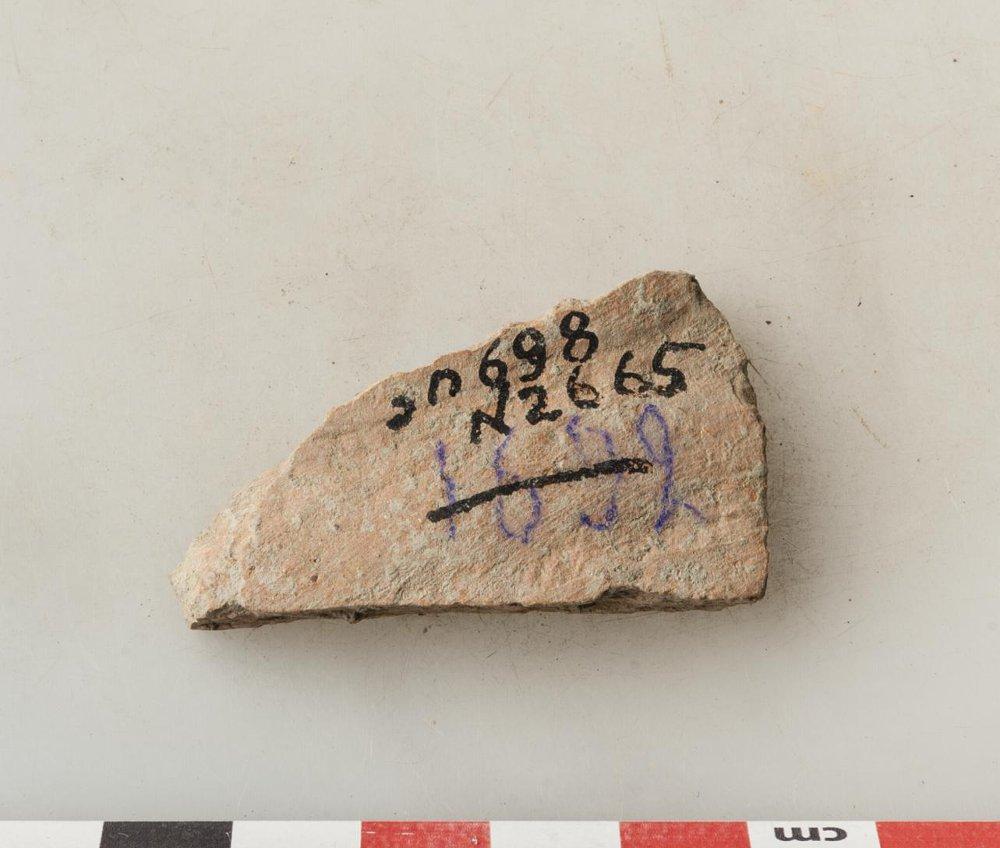 on 698
N2665
1692
cm